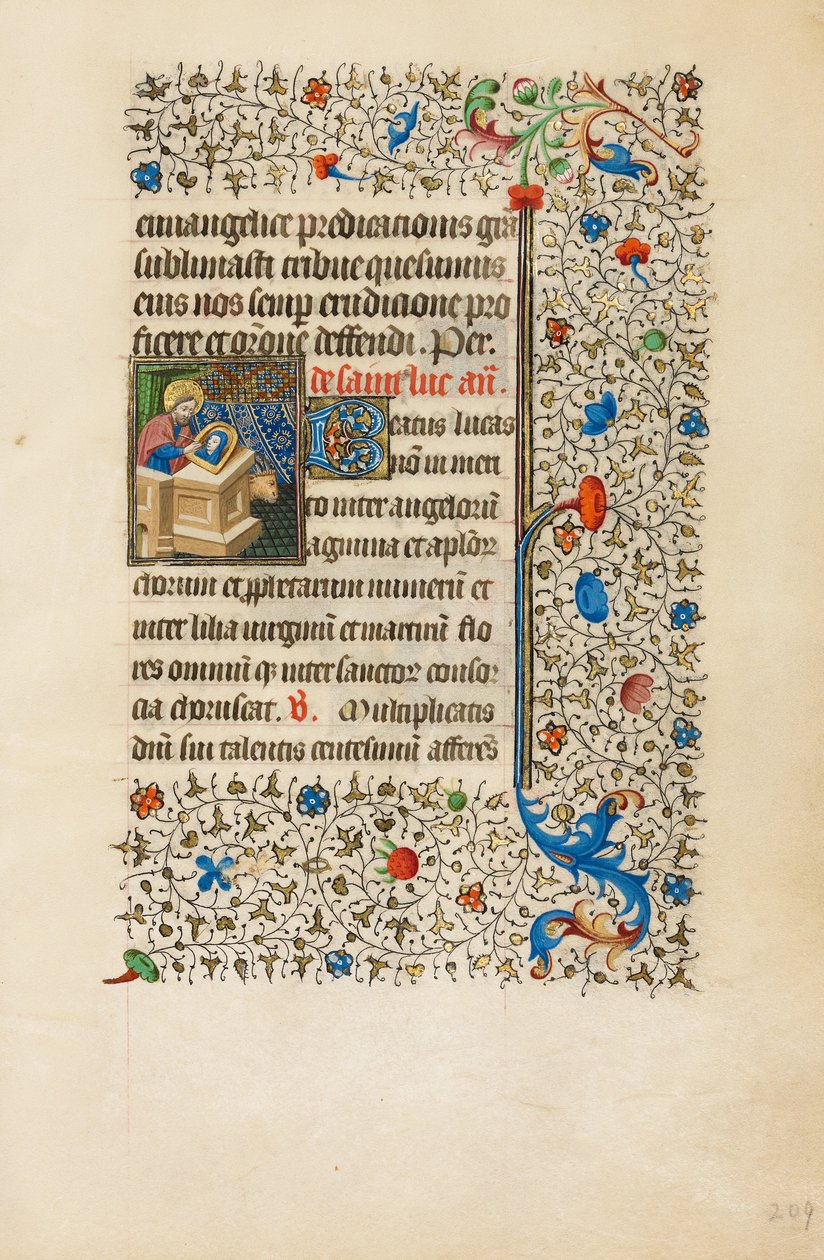 euuangelice predicationis grā
sublimasti tribue quesumus
eius nos semp erudicione pro
ficere et orōne deffendi. Per.
de saint luc añ.
Beatus lucas
nō in meri
to inter angelorū
agmina et aplōrꝝ
chorum et ꝓphetarum numerū et
inter lilia uirginū et martirū flo
res omniū qꝫ inter sanctorꝝ consor
cia choruscat. ℣. Multiplicatis
dñi sui talentis centesimū afferēs
209